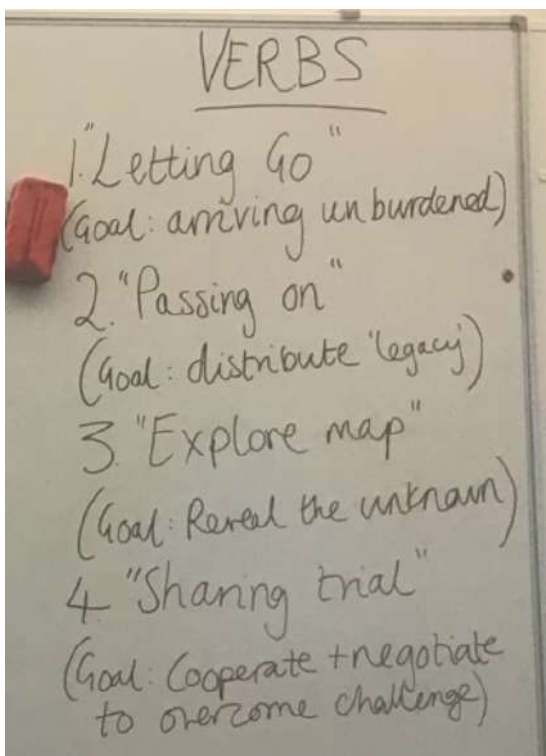 VERBS
1. "Letting Go"
(Goal: arriving unburdened)
2. "Passing on"
(Goal: distribute 'legacy')
3. "Explore map"
(Goal: Reveal the unknown)
4. "Sharing trial"
(Goal: Cooperate + negotiate
to overcome challenge)